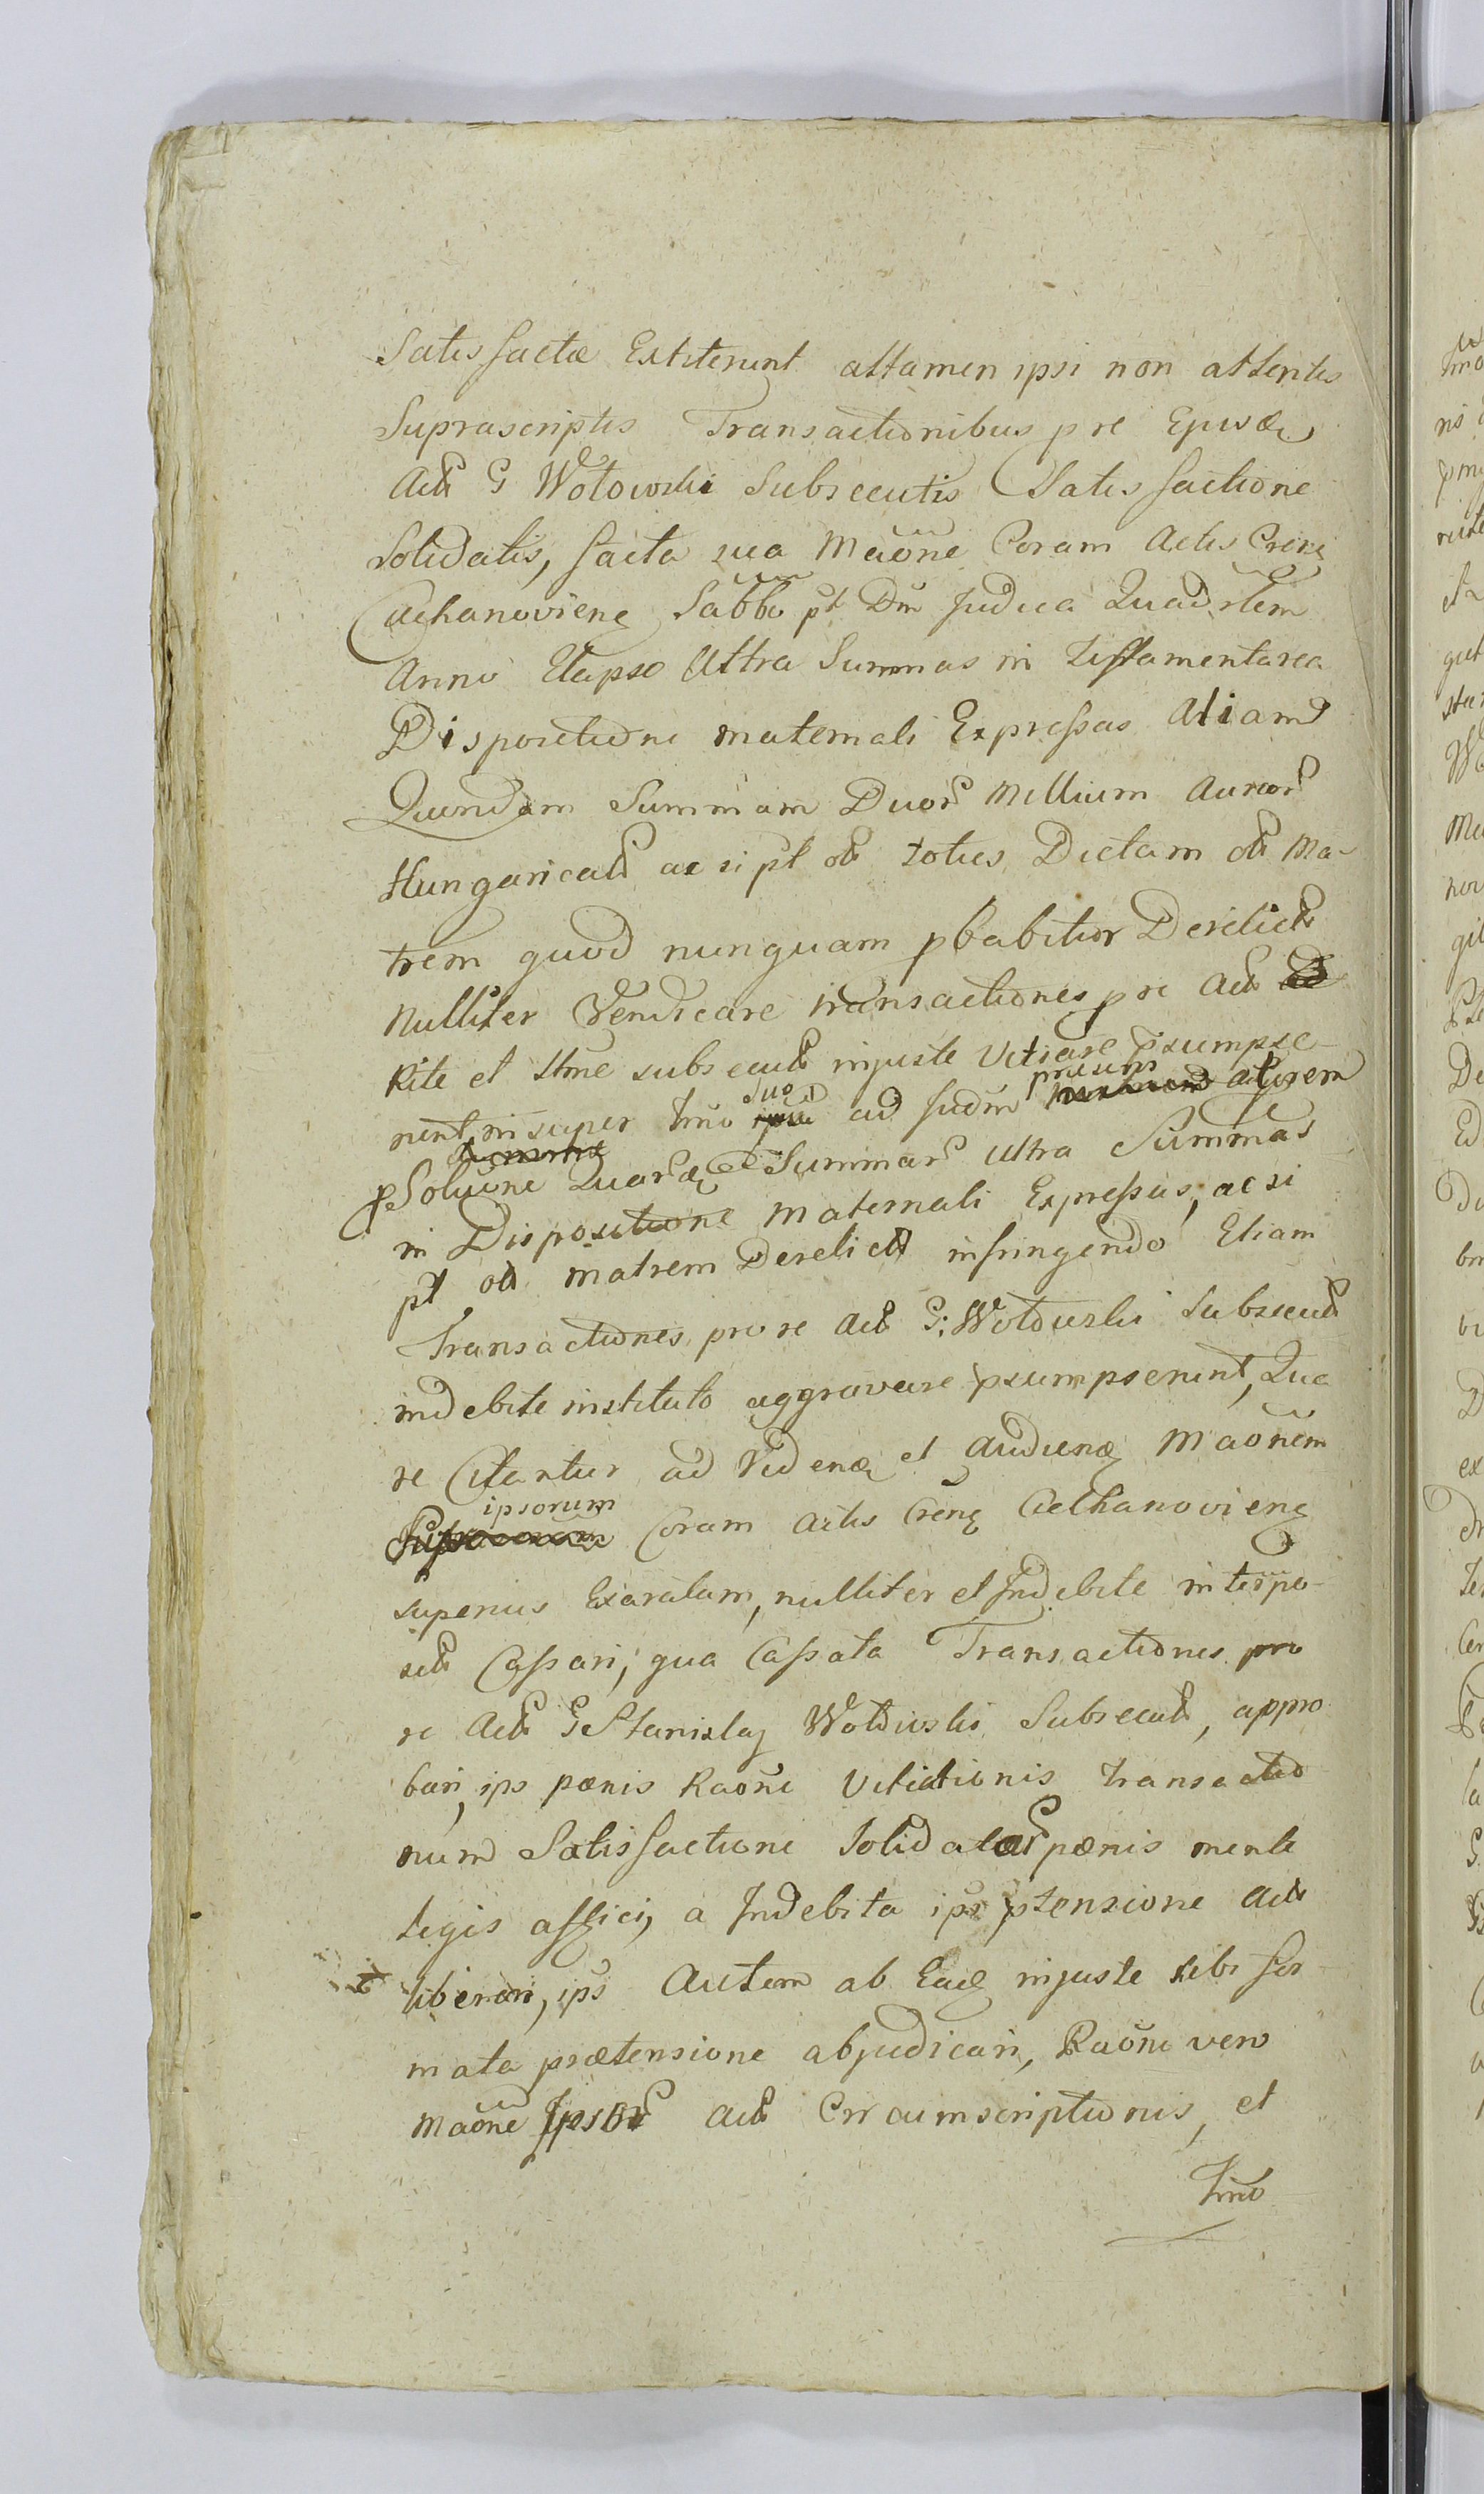 Satisfactæ Extiterunt attamen ipsi non attentis
Suprascriptis Transactionibus p re Ejusdē
Act G Wołowski Subsecutis Satisfactione
Solidatis, facta sua Maōne Coram Actis
Ciechanovien Sabbo pt Dm Judica Quadrlem
Anno Elapso Ultra Summas in Testamentarea
Dispositione maternali Expressas Aliam
Quandam Summam Duor Millium Aureor
Hungarical ac si pt ob toties Dictam ob Ma-
trem quod nunquam pbabitur Derelict
Nulliter Vendicare transactiones pre Act
Rite et ttme subsecut injuste Vitiare psumpse-
runt, insuper tmō suo ad Judm atorem
p Solutione Quar Summar ultra Summas
in Dispositione Maternali Expressas, ac si
pt ob matrem Derelict infringendo Etiam
Transactiones pro re Act G: Wołowski Subsecut
indebite instituto aggravare psumpserunt, Qua
re Citantur ad Viden et Audien Maōnem
ipsorum Coram Actis Cren Ciechanovien
superius Exaratam, nulliter et Indebite interpo-
sit Cassari, qua Cassata Transactiones pro
re Act G Stanislaj Wołowski Subsecut, appro
bari, ips pænis Raōne Vitiationis transactio
num Satisfactione Solidatar pænis mente
legis affici, a Indebita ips ptensione Act
liberari, ips Autem ab Ead injuste sibi for-
mata prætensione abjudicari, Raōne vero
Maōne Ipsor Act Circumscriptionis, et
Tmō